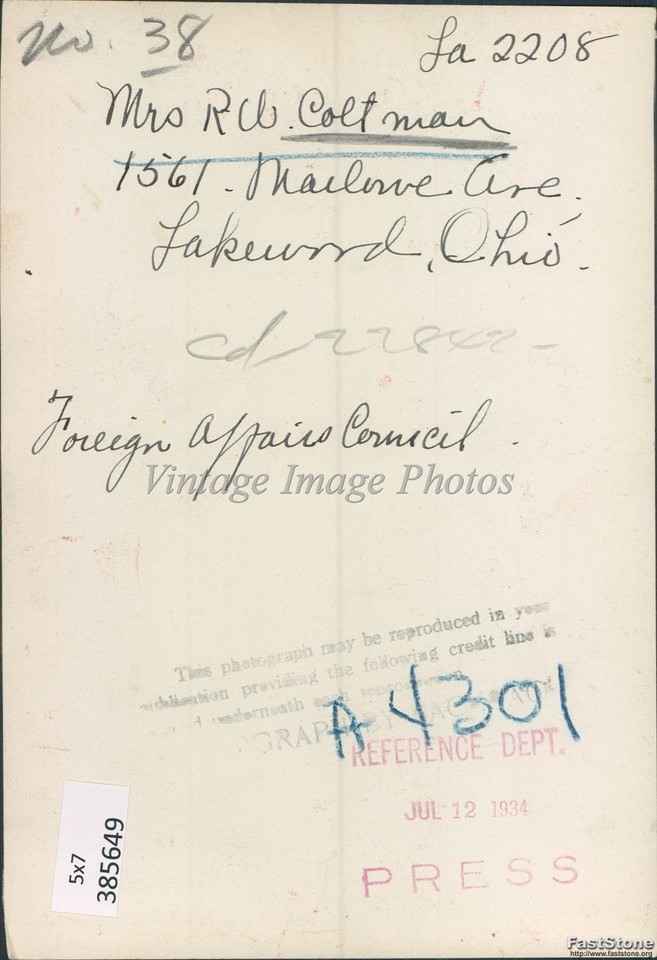 No. 38
La 2208
Mrs R W. Coltman
1561. Marlowe Ave.
Lakewood, Ohio.
Foreign Affairs Council.
Vintage Image Photos
This photograph may be reproduced in your
publication providing the following credit line is
underneath each reproduction
A4301
REFERENCE DEPT.
JUL 12 1934
PRESS
5x7
385649
FastStone
http://www.faststone.org